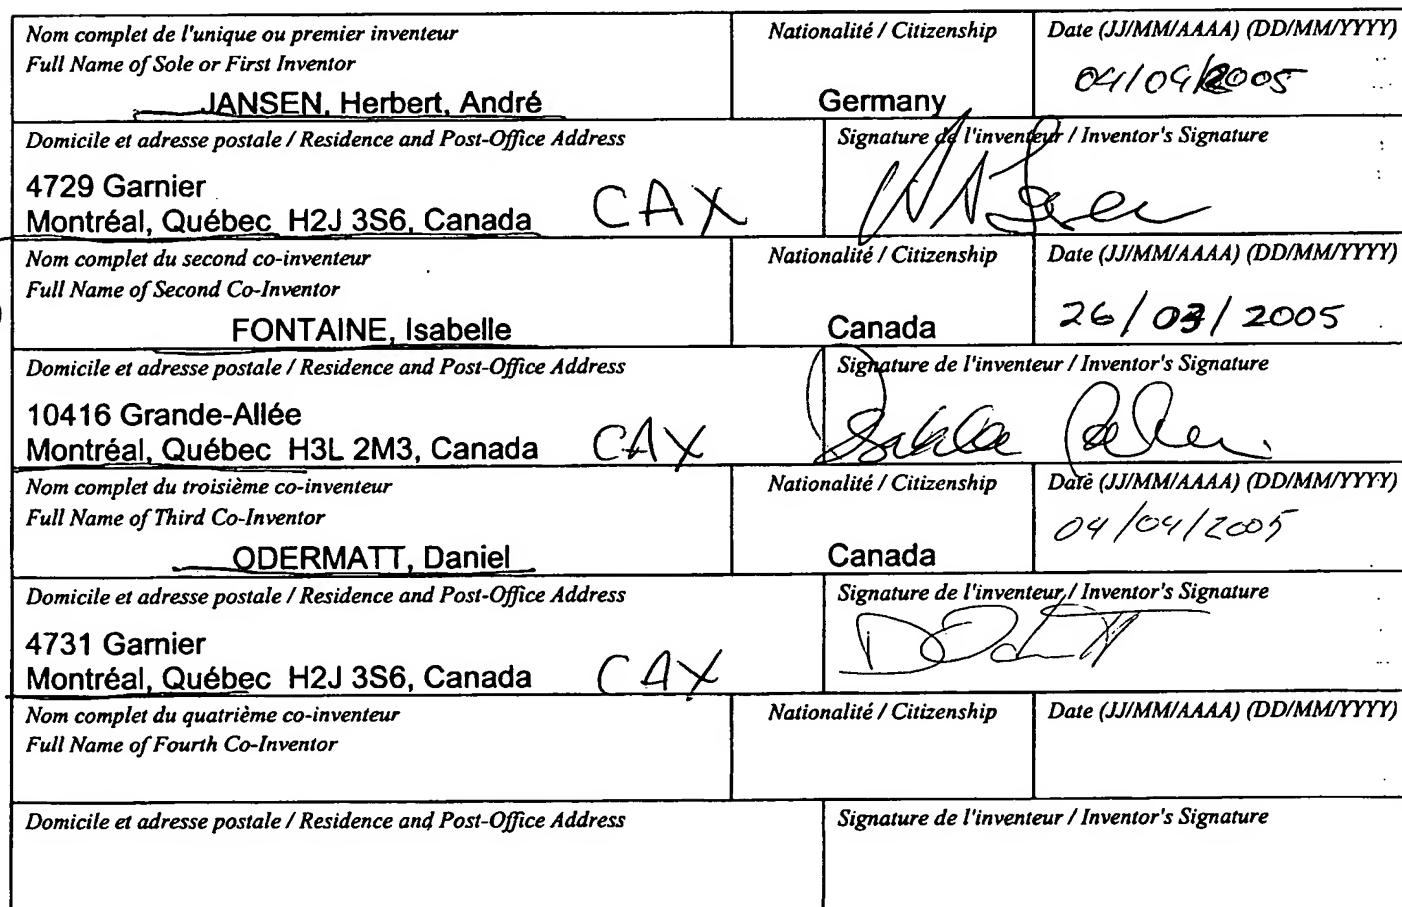 Nom complet de l'unique ou premier inventeur
Full Name of Sole or First Inventor
JANSEN, Herbert, André
Nationalité / Citizenship
Germany
Date (JJ/MM/AAAA) (DD/MM/YYYY)
04/04/2005
Domicile et adresse postale / Residence and Post-Office Address
4729 Garnier
Montréal, Québec H2J 3S6, Canada
CAX
Signature de l'inventeur / Inventor's Signature
Nom complet du second co-inventeur
Full Name of Second Co-Inventor
FONTAINE, Isabelle
Nationalité / Citizenship
Canada
Date (JJ/MM/AAAA) (DD/MM/YYYY)
26/03/2005
Domicile et adresse postale / Residence and Post-Office Address
10416 Grande-Allée
Montréal, Québec H3L 2M3, Canada
CAX
Signature de l'inventeur / Inventor's Signature
Nom complet du troisième co-inventeur
Full Name of Third Co-Inventor
ODERMATT, Daniel
Nationalité / Citizenship
Canada
Date (JJ/MM/AAAA) (DD/MM/YYYY)
04/04/2005
Domicile et adresse postale / Residence and Post-Office Address
4731 Garnier
Montréal, Québec H2J 3S6, Canada
CAX
Signature de l'inventeur / Inventor's Signature
Nom complet du quatrième co-inventeur
Full Name of Fourth Co-Inventor
Nationalité / Citizenship
Date (JJ/MM/AAAA) (DD/MM/YYYY)
Domicile et adresse postale / Residence and Post-Office Address
Signature de l'inventeur / Inventor's Signature